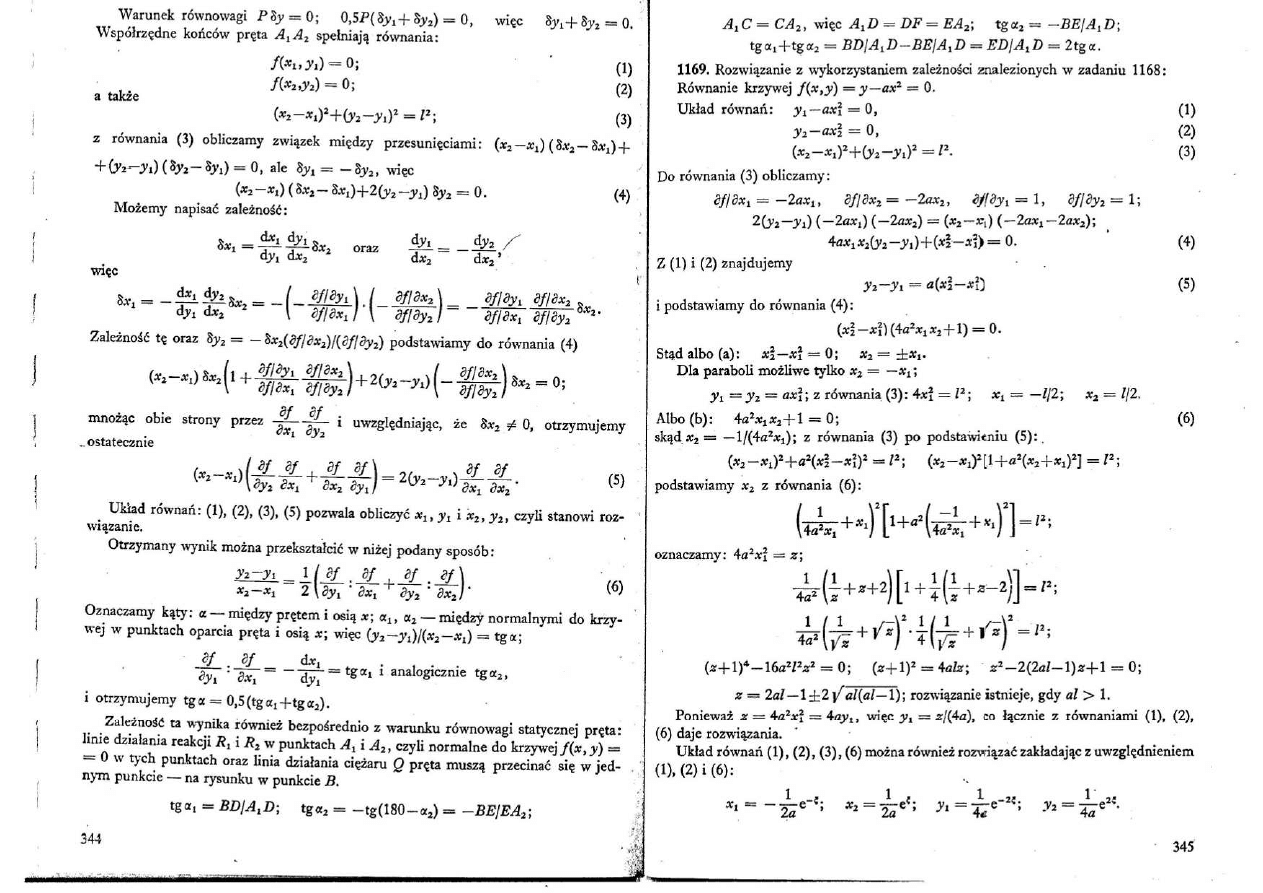 Warunek równowagi P δy = 0; 0,5P(δy₁ + δy₂) = 0, więc δy₁ + δy₂ = 0.
Współrzędne końców pręta A₁A₂ spełniają równania:
f(x₁, y₁) = 0; (1)
f(x₂, y₂) = 0; (2)
a także
(x₂−x₁)²+(y₂−y₁)² = l²; (3)
z równania (3) obliczamy związek między przesunięciami: (x₂−x₁)(δx₂−δx₁)+
+(y₂−y₁)(δy₂−δy₁) = 0, ale δy₁ = −δy₂, więc
(x₂−x₁)(δx₂−δx₁)+2(y₂−y₁) δy₂ = 0. (4)
Możemy napisać zależność:
δx₁ = dx₁/dy₁ dy₁/dx₂ δx₂ oraz dy₁/dx₂ = − dy₂/dx₂,
więc
δx₁ = − dx₁/dy₁ dy₂/dx₂ δx₂ = −(− ∂f/∂y₁ / ∂f/∂x₁)·(− ∂f/∂x₂ / ∂f/∂y₂) = − ∂f/∂y₁ / ∂f/∂x₁ ∂f/∂x₂ / ∂f/∂y₂ δx₂.
Zależność tę oraz δy₂ = −δx₂(∂f/∂x₂)/(∂f/∂y₂) podstawiamy do równania (4)
(x₂−x₁) δx₂(1 + ∂f/∂y₁ / ∂f/∂x₁ ∂f/∂x₂ / ∂f/∂y₂) + 2(y₂−y₁)(− ∂f/∂x₂ / ∂f/∂y₂) δx₂ = 0;
mnożąc obie strony przez ∂f/∂x₁ ∂f/∂y₂ i uwzględniając, że δx₂ ≠ 0, otrzymujemy
ostatecznie
(x₂−x₁)(∂f/∂y₂ ∂f/∂x₁ + ∂f/∂x₂ ∂f/∂y₁) = 2(y₂−y₁) ∂f/∂x₁ ∂f/∂x₂. (5)
Układ równań: (1), (2), (3), (5) pozwala obliczyć x₁, y₁ i x₂, y₂, czyli stanowi roz-
wiązanie.
Otrzymany wynik można przekształcić w niżej podany sposób:
(y₂−y₁)/(x₂−x₁) = 1/2 (∂f/∂y₁ : ∂f/∂x₁ + ∂f/∂y₂ : ∂f/∂x₂). (6)
Oznaczamy kąty: α — między prętem i osią x; α₁, α₂ — między normalnymi do krzy-
wej w punktach oparcia pręta i osią x; więc (y₂−y₁)/(x₂−x₁) = tg α;
∂f/∂y₁ : ∂f/∂x₁ = − dx₁/dy₁ = tg α₁ i analogicznie tg α₂,
i otrzymujemy tg α = 0,5(tg α₁+tg α₂).
Zależność ta wynika również bezpośrednio z warunku równowagi statycznej pręta:
linie działania reakcji R₁ i R₂ w punktach A₁ i A₂, czyli normalne do krzywej f(x, y) =
= 0 w tych punktach oraz linia działania ciężaru Q pręta muszą przecinać się w jed-
nym punkcie — na rysunku w punkcie B.
tg α₁ = BD/A₁D; tg α₂ = −tg(180−α₂) = −BE/EA₂;
344
A₁C = CA₂, więc A₁D = DF = EA₂; tg α₂ = −BE/A₁D;
tg α₁+tg α₂ = BD/A₁D−BE/A₁D = ED/A₁D = 2tg α.
1169. Rozwiązanie z wykorzystaniem zależności znalezionych w zadaniu 1168:
Równanie krzywej f(x, y) = y−ax² = 0.
Układ równań: y₁−ax₁² = 0, (1)
y₂−ax₂² = 0, (2)
(x₂−x₁)²+(y₂−y₁)² = l². (3)
Do równania (3) obliczamy:
∂f/∂x₁ = −2ax₁, ∂f/∂x₂ = −2ax₂, ∂f/∂y₁ = 1, ∂f/∂y₂ = 1;
2(y₂−y₁)(−2ax₁)(−2ax₂) = (x₂−x₁)(−2ax₁−2ax₂);
4ax₁x₂(y₂−y₁)+(x₂²−x₁²) = 0. (4)
Z (1) i (2) znajdujemy
y₂−y₁ = a(x₂²−x₁²) (5)
i podstawiamy do równania (4):
(x₂²−x₁²)(4a²x₁x₂+1) = 0.
Stąd albo (a): x₂²−x₁² = 0; x₂ = ±x₁.
Dla paraboli możliwe tylko x₂ = −x₁;
y₁ = y₂ = ax₁²; z równania (3): 4x₁² = l²; x₁ = −l/2; x₂ = l/2.
Albo (b): 4a²x₁x₂+1 = 0; (6)
skąd x₂ = −1/(4a²x₁); z równania (3) po podstawieniu (5):
(x₂−x₁)²+a²(x₂²−x₁²)² = l²; (x₂−x₁)²[1+a²(x₂+x₁)²] = l²;
podstawiamy x₂ z równania (6):
(1/(4a²x₁) + x₁)² [1+a²(−1/(4a²x₁) + x₁)²] = l²;
oznaczamy: 4a²x₁² = z;
1/(4a²) (1/z + z+2)[1 + 1/4 (1/z + z−2)] = l²;
1/(4a²) (1/√z + √z)² · 1/4 (1/√z + √z)² = l²;
(z+1)⁴−16a²l²z² = 0; (z+1)² = 4alz; z²−2(2al−1)z+1 = 0;
z = 2al−1±2√(al(al−1)); rozwiązanie istnieje, gdy al > 1.
Ponieważ z = 4a²x₁² = 4ay₁, więc y₁ = z/(4a), co łącznie z równaniami (1), (2),
(6) daje rozwiązania.
Układ równań (1), (2), (3), (6) można również rozwiązać zakładając z uwzględnieniem
(1), (2) i (6):
x₁ = − 1/2a e^−ξ; x₂ = 1/2a e^ξ; y₁ = 1/4a e^−2ξ; y₂ = 1/4a e^2ξ.
345